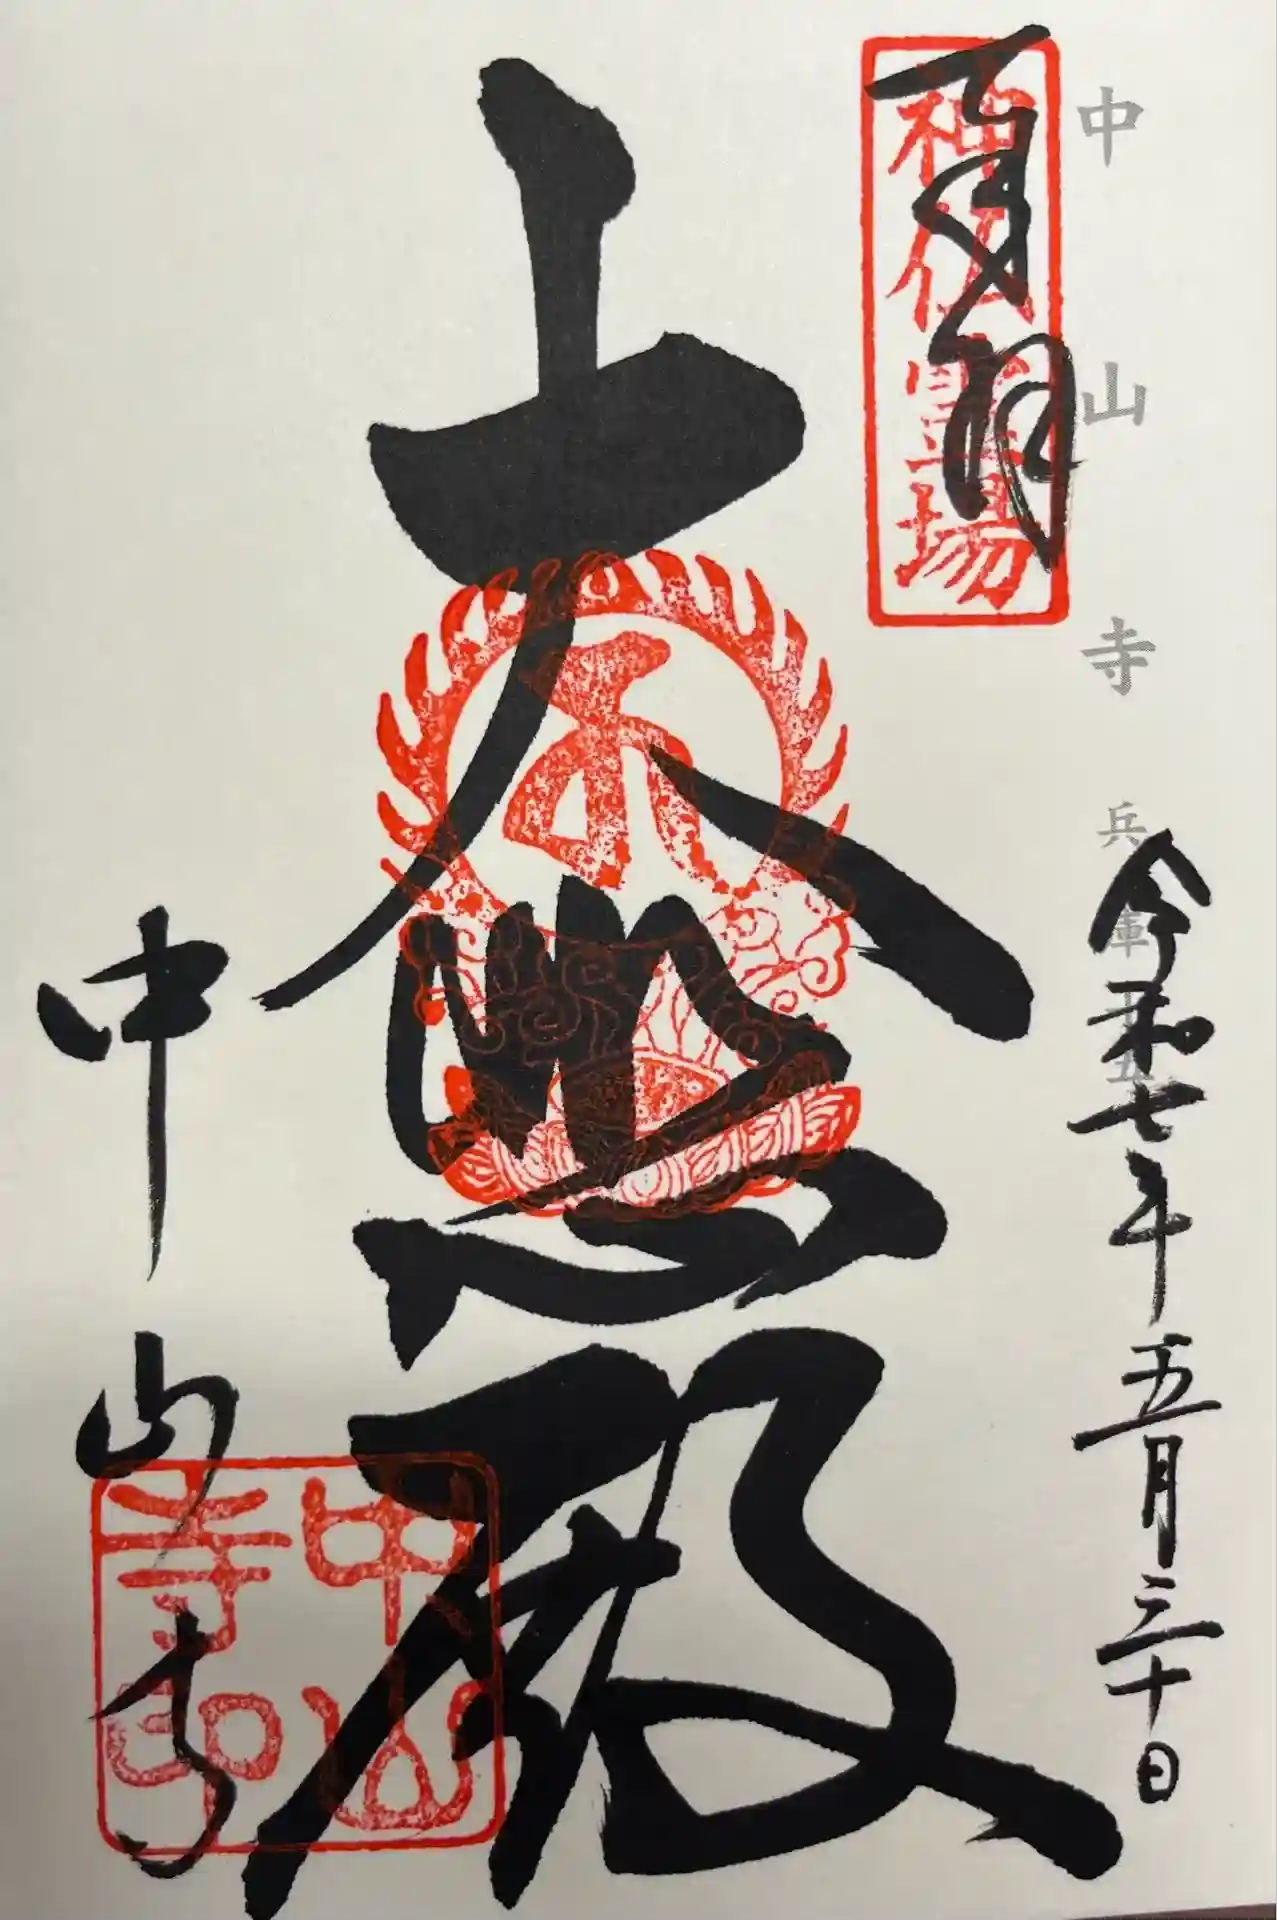 中山寺 兵庫十五
奉拝
神仏霊場
令和七年五月三十日
大悲殿
中山寺
中山寺印